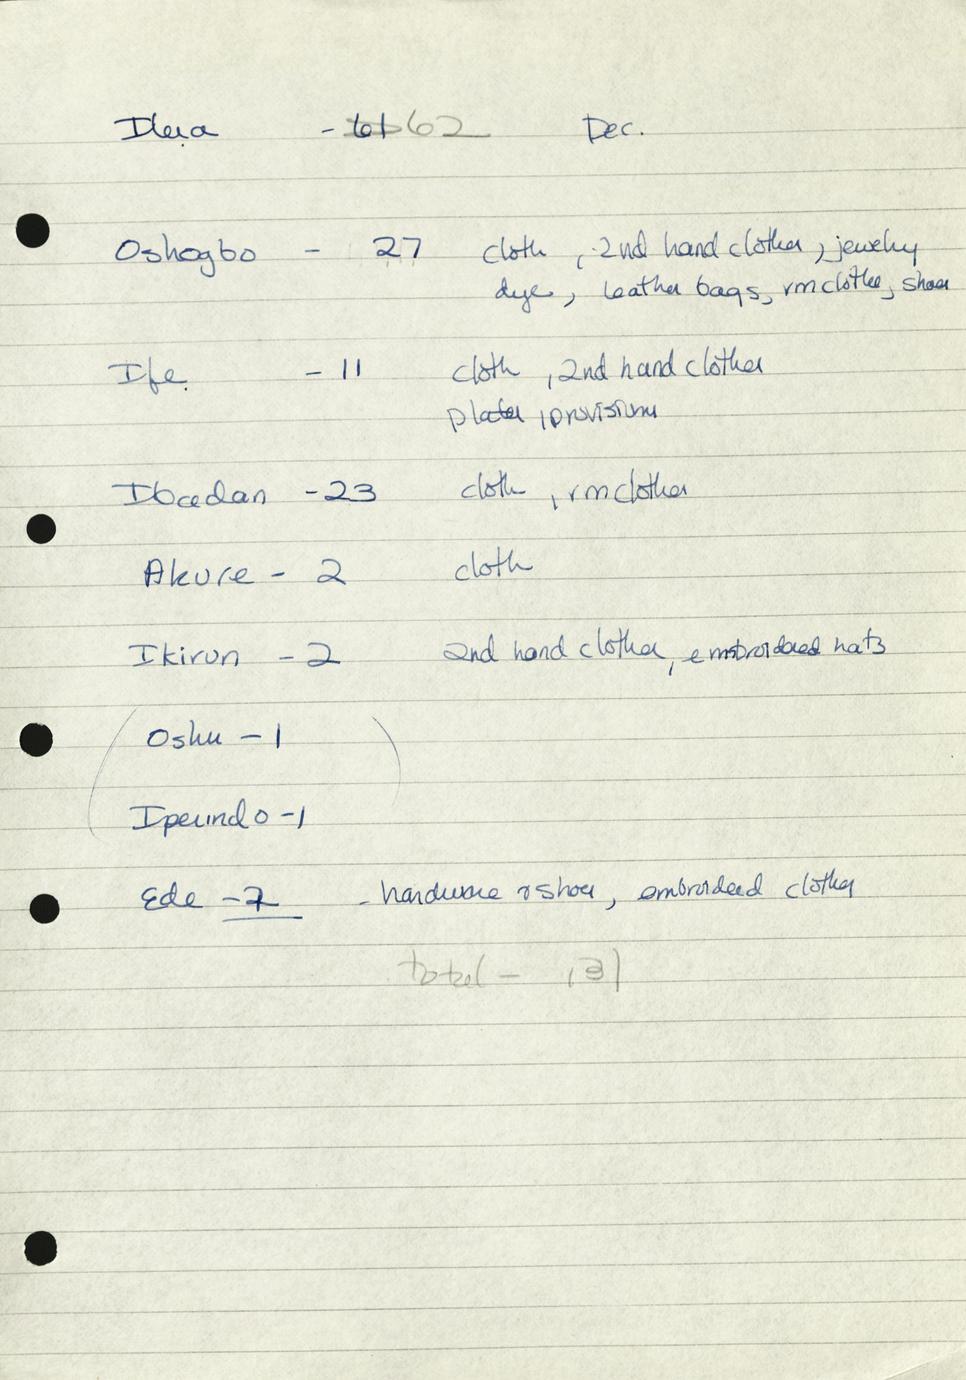 Ilesa - 61 62 Dec.
Oshogbo - 27 cloth, 2nd hand clothes, jewelry
dye, leather bags, rm clothes, shoes
Ife - 11 cloth, 2nd hand clothes
plates, provisions
Ibadan - 23 cloth, rm clothes
Akure - 2 cloth
Ikirun - 2 2nd hand clothes, embroidered hats
(Oshu - 1
Ipetindo - 1)
Ede - 2 - hardware & shoes, embroidered clothes
total - 131